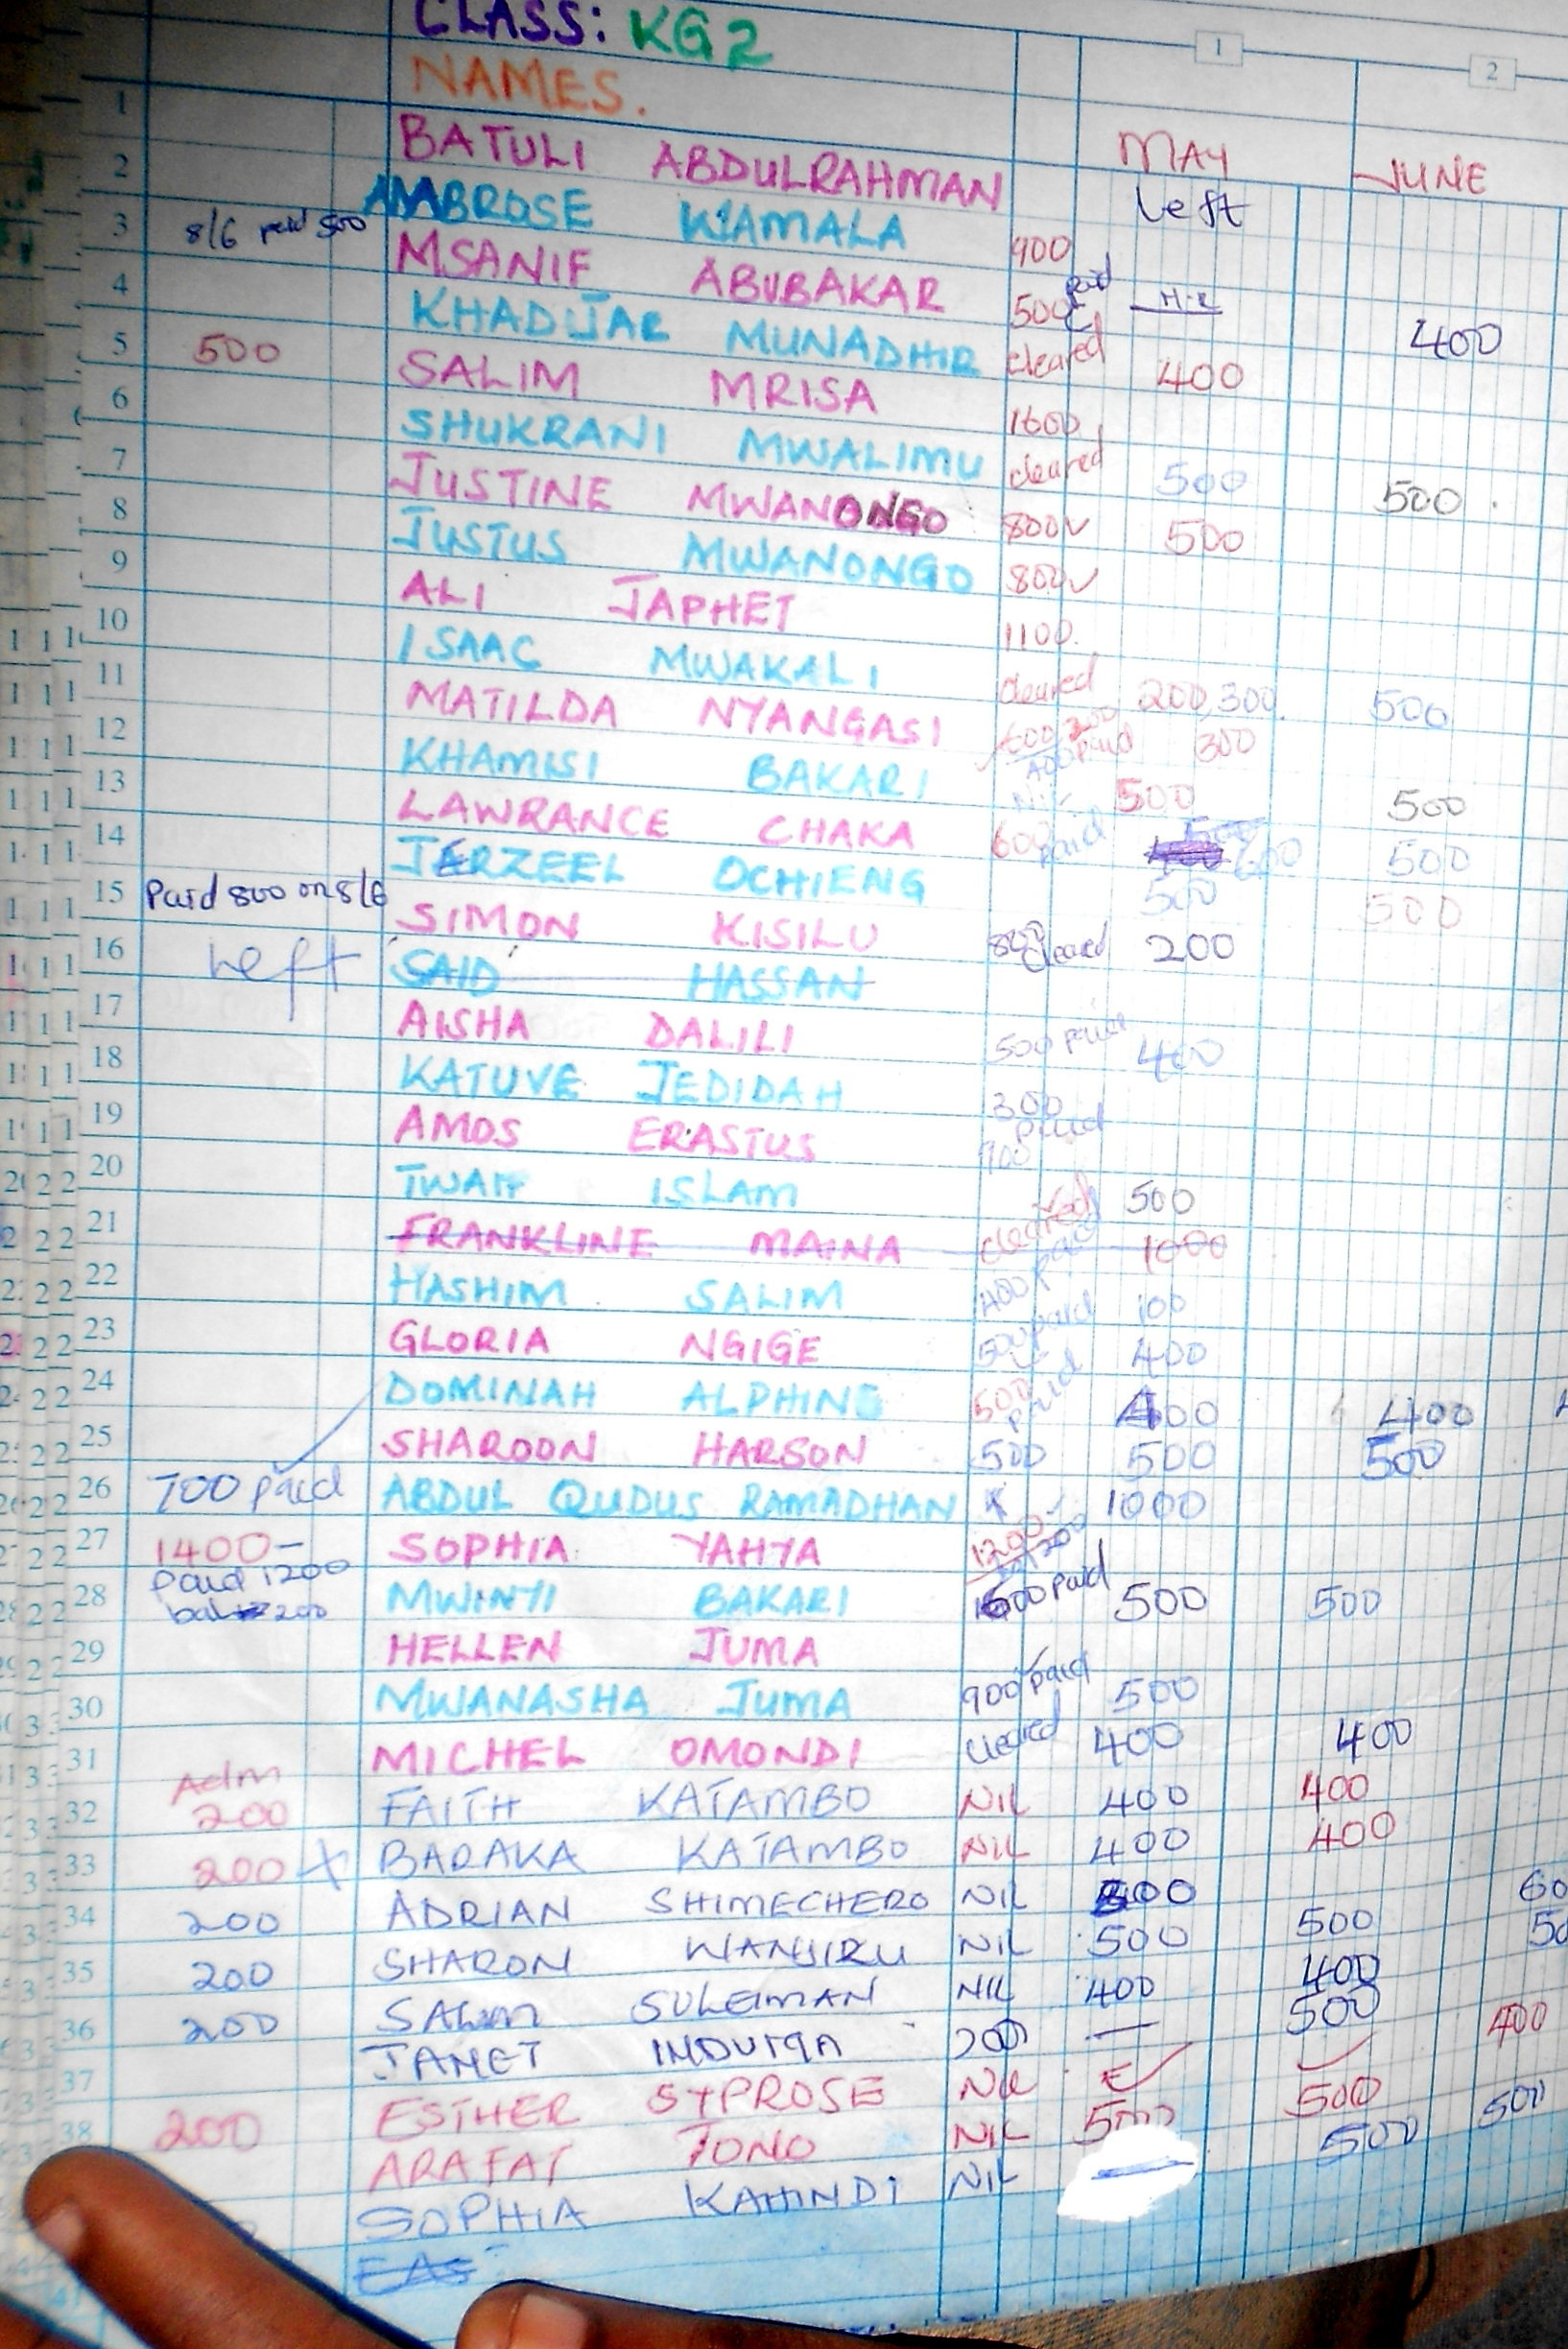 CLASS: KG2
1 2
NAMES.
1 BATULI ABDULRAHMAN MAY JUNE
2 AMBROSE KIAMALA Left
3 8/6 paid 500 MSANIF ABUBAKAR 900
4 KHADIJAR MUNADHIR 500 paid 400
5 500 SALIM MRISA cleared 400
6 SHUKRANI MWALIMU 1600
7 JUSTINE MWANONGO cleared 500 500
8 JUSTUS MWANONGO 800 500
9 ALI JAPHET 800
10 ISAAC MWAKALI 1100
11 MATILDA NYANGASI cleared 200,300 500
12 KHAMISI BAKARI 600 200 400 paid 300
13 LAWRANCE CHAKA NIL 500 500
14 JERZEEL OCHIENG 600 paid 600 500
15 Paid 800 on 8/6 SIMON KISILU 500 500
16 Left SAID HASSAN cleared 200
17 AISHA DALILI
18 KATUVE JEDIDAH 500 paid 400
19 AMOS ERASTUS 300 paid
20 TWAH ISLAM 900
21 FRANKLINE MAINA cleared 500
22 HASHIM SALIM 400 paid 1000
23 GLORIA NGIGE 500 paid 100
24 DOMINAH ALPHINE 500 paid 400
25 SHAROON HARSON 500 400 400
26 700 paid ABDUL QUDUS RAMADHAN 500 500
27 1400- SOPHIA YAHYA 1200 200 1000
paid 1200
28 bal 200 MWINYI BAKARI 600 paid 500 500
29 HELLEN JUMA
30 MWANASHA JUMA 900 paid 500
31 MICHEL OMONDI cleared 400 400
Adm
32 200 FAITH KATAMBO NIL 400 400
33 200 X BARAKA KATAMBO NIL 400 400
34 200 ADRIAN SHIMECHERO NIL 500 60
35 200 SHARON WANJIRU NIL 500 500 50
36 200 SALIM SULEIMAN NIL 400 400
JANET 200 — 500 400
37 ESTHER SYPROSE NIL 500
38 200 ARAFAT TONO NIL 500 500 500
SOPHIA KAHINDI NIL
EAS